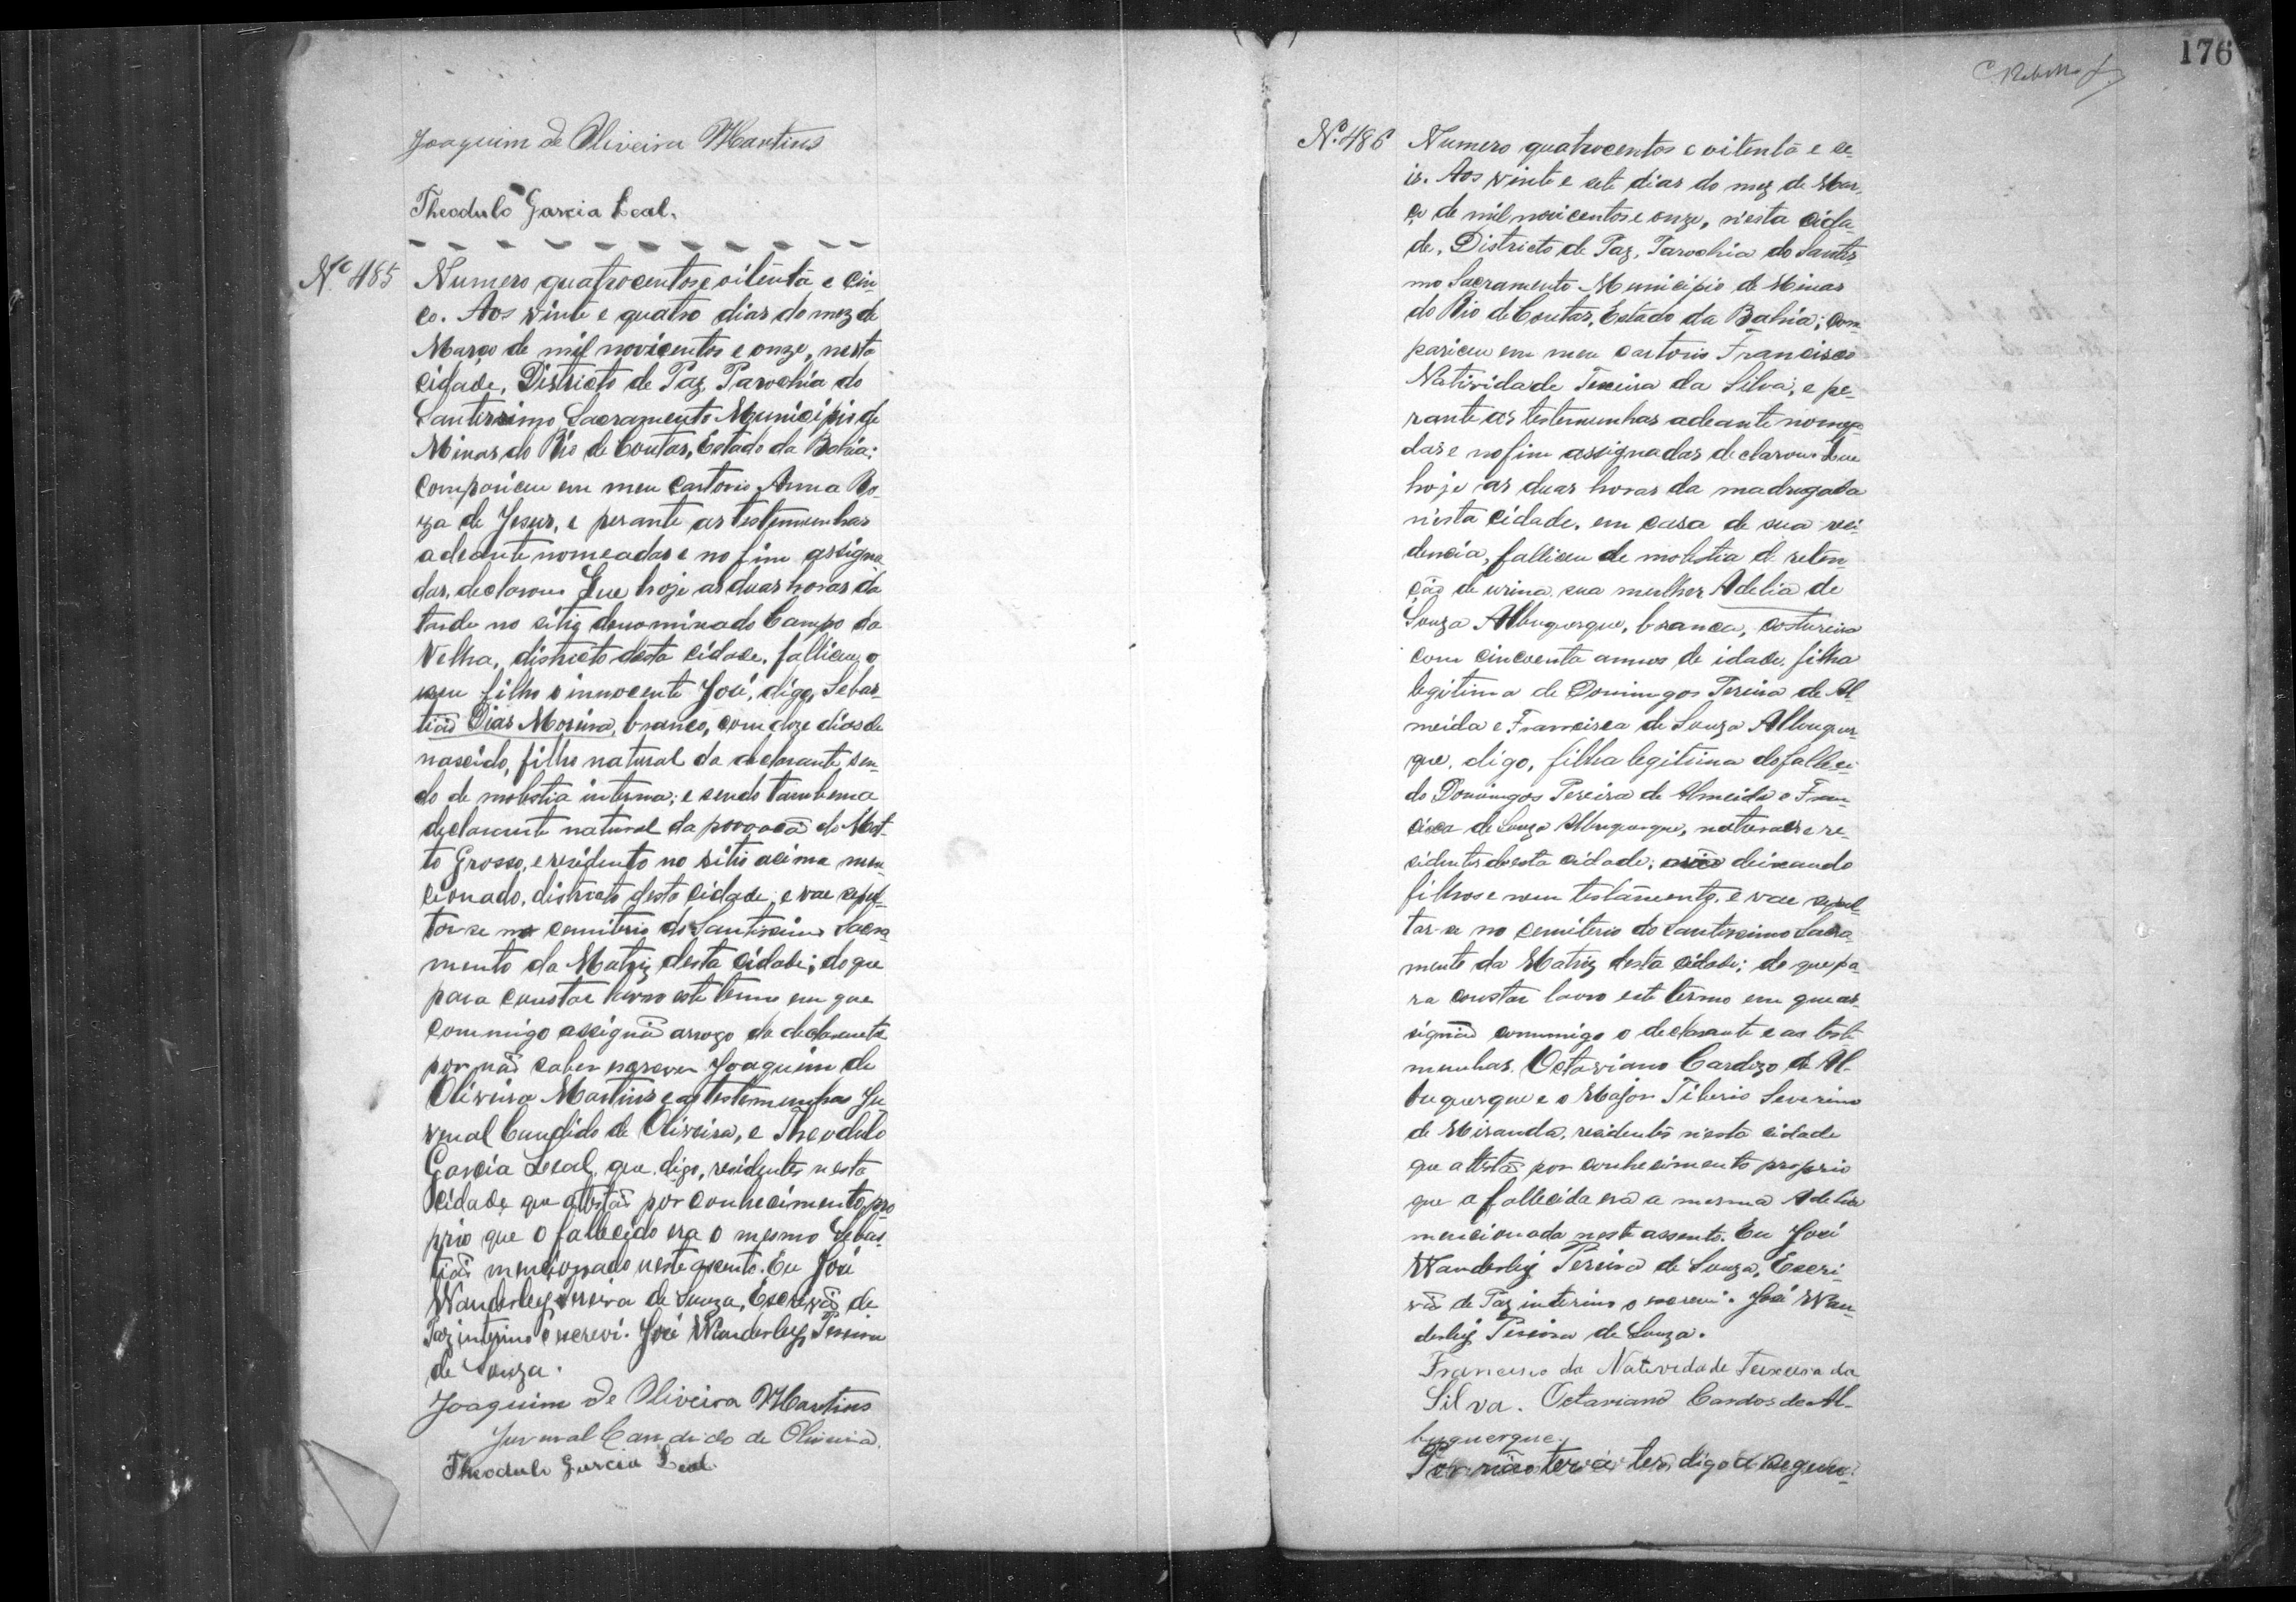 Joaquim de Oliveira Martins
Theodulo Garcia Leal.
Nº 485
Numero quatrocentos e oitenta e cin-
co. Aos vinte e quatro dias do mez de
Março de mil novicentos e onze, nesta
cidade, Districto de Paz, Parochia do
Santissimo Sacramento Municipio de
Minas do Rio de Contas, Estado da Bahia;
compariceu em meu cartorio Anna Ro-
za de Jesus, e perante as testemunhas
adeante nomeadas e no fim assigna-
das, declarou Que hoje as duas horas da
tarde no sitio denominado Campo da
Velha, districto desta cidade, falliceu o
seu filho o innocente José, digo, Sebas-
tião Dias Moreira, branco, com doze dias de
nascido, filho natural da declarante, sen-
do de molestia interna; e sendo tambem a
declarante natural da povoação do Mat-
to Grosso, e residente no sitio acima men-
cionado, districto desta cidade, e vae sepul-
tar-se no cemiterio do Santissimo Sacra-
mento da Matriz desta cidade; do que
para constar lavro este termo em que
commigo assignão arrogo da declarante
por não saber escrever Joaquim de
Oliveira Martins e as testemunhas Ju-
venal Candido de Oliveira, e Theodulo
Garcia Leal, que digo, residentes nesta
cidade, que attestão por conhecimento pro-
prio que o fallecido era o mesmo Sebas-
tião mencionado neste assento. Eu José
Wanderley Pereira de Souza, Escrivão de
Paz interino o escrevi. José Wanderley Pereira
de Souza.
Joaquim de Oliveira Martins
Juvenal Candido de Oliveira.
Theodulo Garcia Leal.
176
Nº 486
Numero quatrocentos e oitenta e se-
is. Aos vinte e sete dias do mez de Mar-
ço de mil novicentos e onze, n'esta cida-
de, Districto de Paz, Parochia do Santis-
mo Sacramento Municipio de Minas
do Rio de Contas, Estado da Bahia; com-
pariceu em meu cartorio Francisco
Natividade Teixeira da Silva, e pe-
rante as testemunhas adeante nomea-
das e no fim assignadas declarou Que
hoje as duas horas da madrugada
n'esta cidade, em casa de sua rei-
dencia, falliceu de molestia de reten-
ção de urina, sua mulher Adelia de
Souza Albuquerque, branca, costureira
com cincoenta annos de idade, filha
legitima de Domingos Pereira de Al-
meida e Francisca de Souza Albuquer-
que, digo, filha legitima do falleci-
do Domingos Pereira de Almeida e Fran-
cisca de Souza Albuquerque, naturaes e re-
sidentes desta cidade; não deixando
filhos e nem testamento, e vae sepul-
tar-se no cemiterio do Santissimo Sacra-
mento da Matriz desta cidade; do que pa-
ra constar lavro este termo em que as-
signão commigo o declarante e as teste-
munhas. Octaviano Cardozo de Al-
buquerque e o Major Tiberio Severino
de Miranda, residentes n'esta cidade
que attestão por conhecimento proprio
que a fallecida era a mesma Adelia
mencionada neste assento. Eu José
Wanderley Pereira de Souza, Escri-
vão de Paz interino o escrevi. José Wan-
derley Pereira de Souza.
Francisco da Natividade Teixeira da
Silva. Octaviano Cardos de Al-
buquerque.
Por não ter a ter digo a segun-